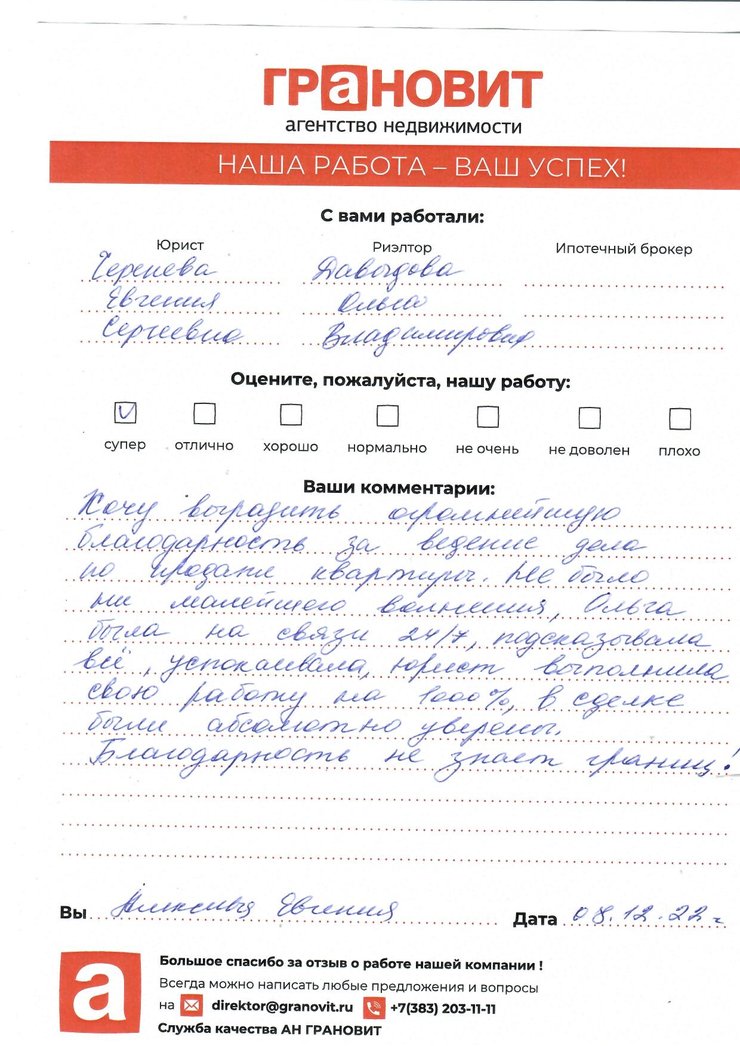 ГРаНОВИТ
агентство недвижимости
НАША РАБОТА – ВАШ УСПЕХ!
С вами работали:
Юрист Риэлтор Ипотечный брокер
Черенева Давыдова
Евгения Ольга
Сергеевна Владимировна
Оцените, пожалуйста, нашу работу:
супер отлично хорошо нормально не очень не доволен плохо
Ваши комментарии:
Хочу выразить огромнейшую
благодарность за ведение дела
по продаже квартиры. Не было
ни малейшего волнения, Ольга
была на связи 24/7, подсказывала
всё, успокаивала, юрист выполнила
свою работу на 1000%, в сделке
были абсолютно уверены.
Благодарность не знает границ!
Вы Евгения Дата 08.12.22 г
а
Большое спасибо за отзыв о работе нашей компании !
Всегда можно написать любые предложения и вопросы
на direktor@granovit.ru +7(383) 203-11-11
Служба качества АН ГРАНОВИТ